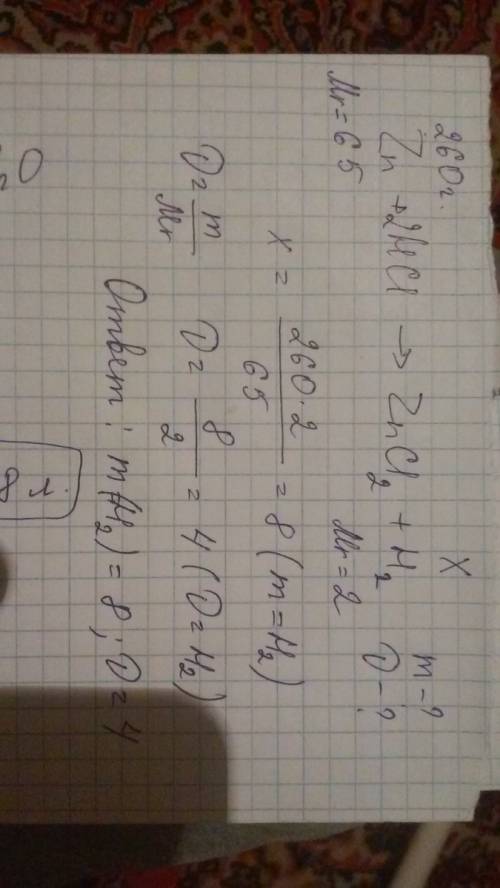 260г. X m-?
Zn + 2HCl → ZnCl2 + H2 D-?
Mr=65 Mr=2
x = 260·2/65 = 8 (m=H2)
D = m/Mr D = 8/2 = 4 (D=H2)
Ответ: m(H2) = 8; D = 4